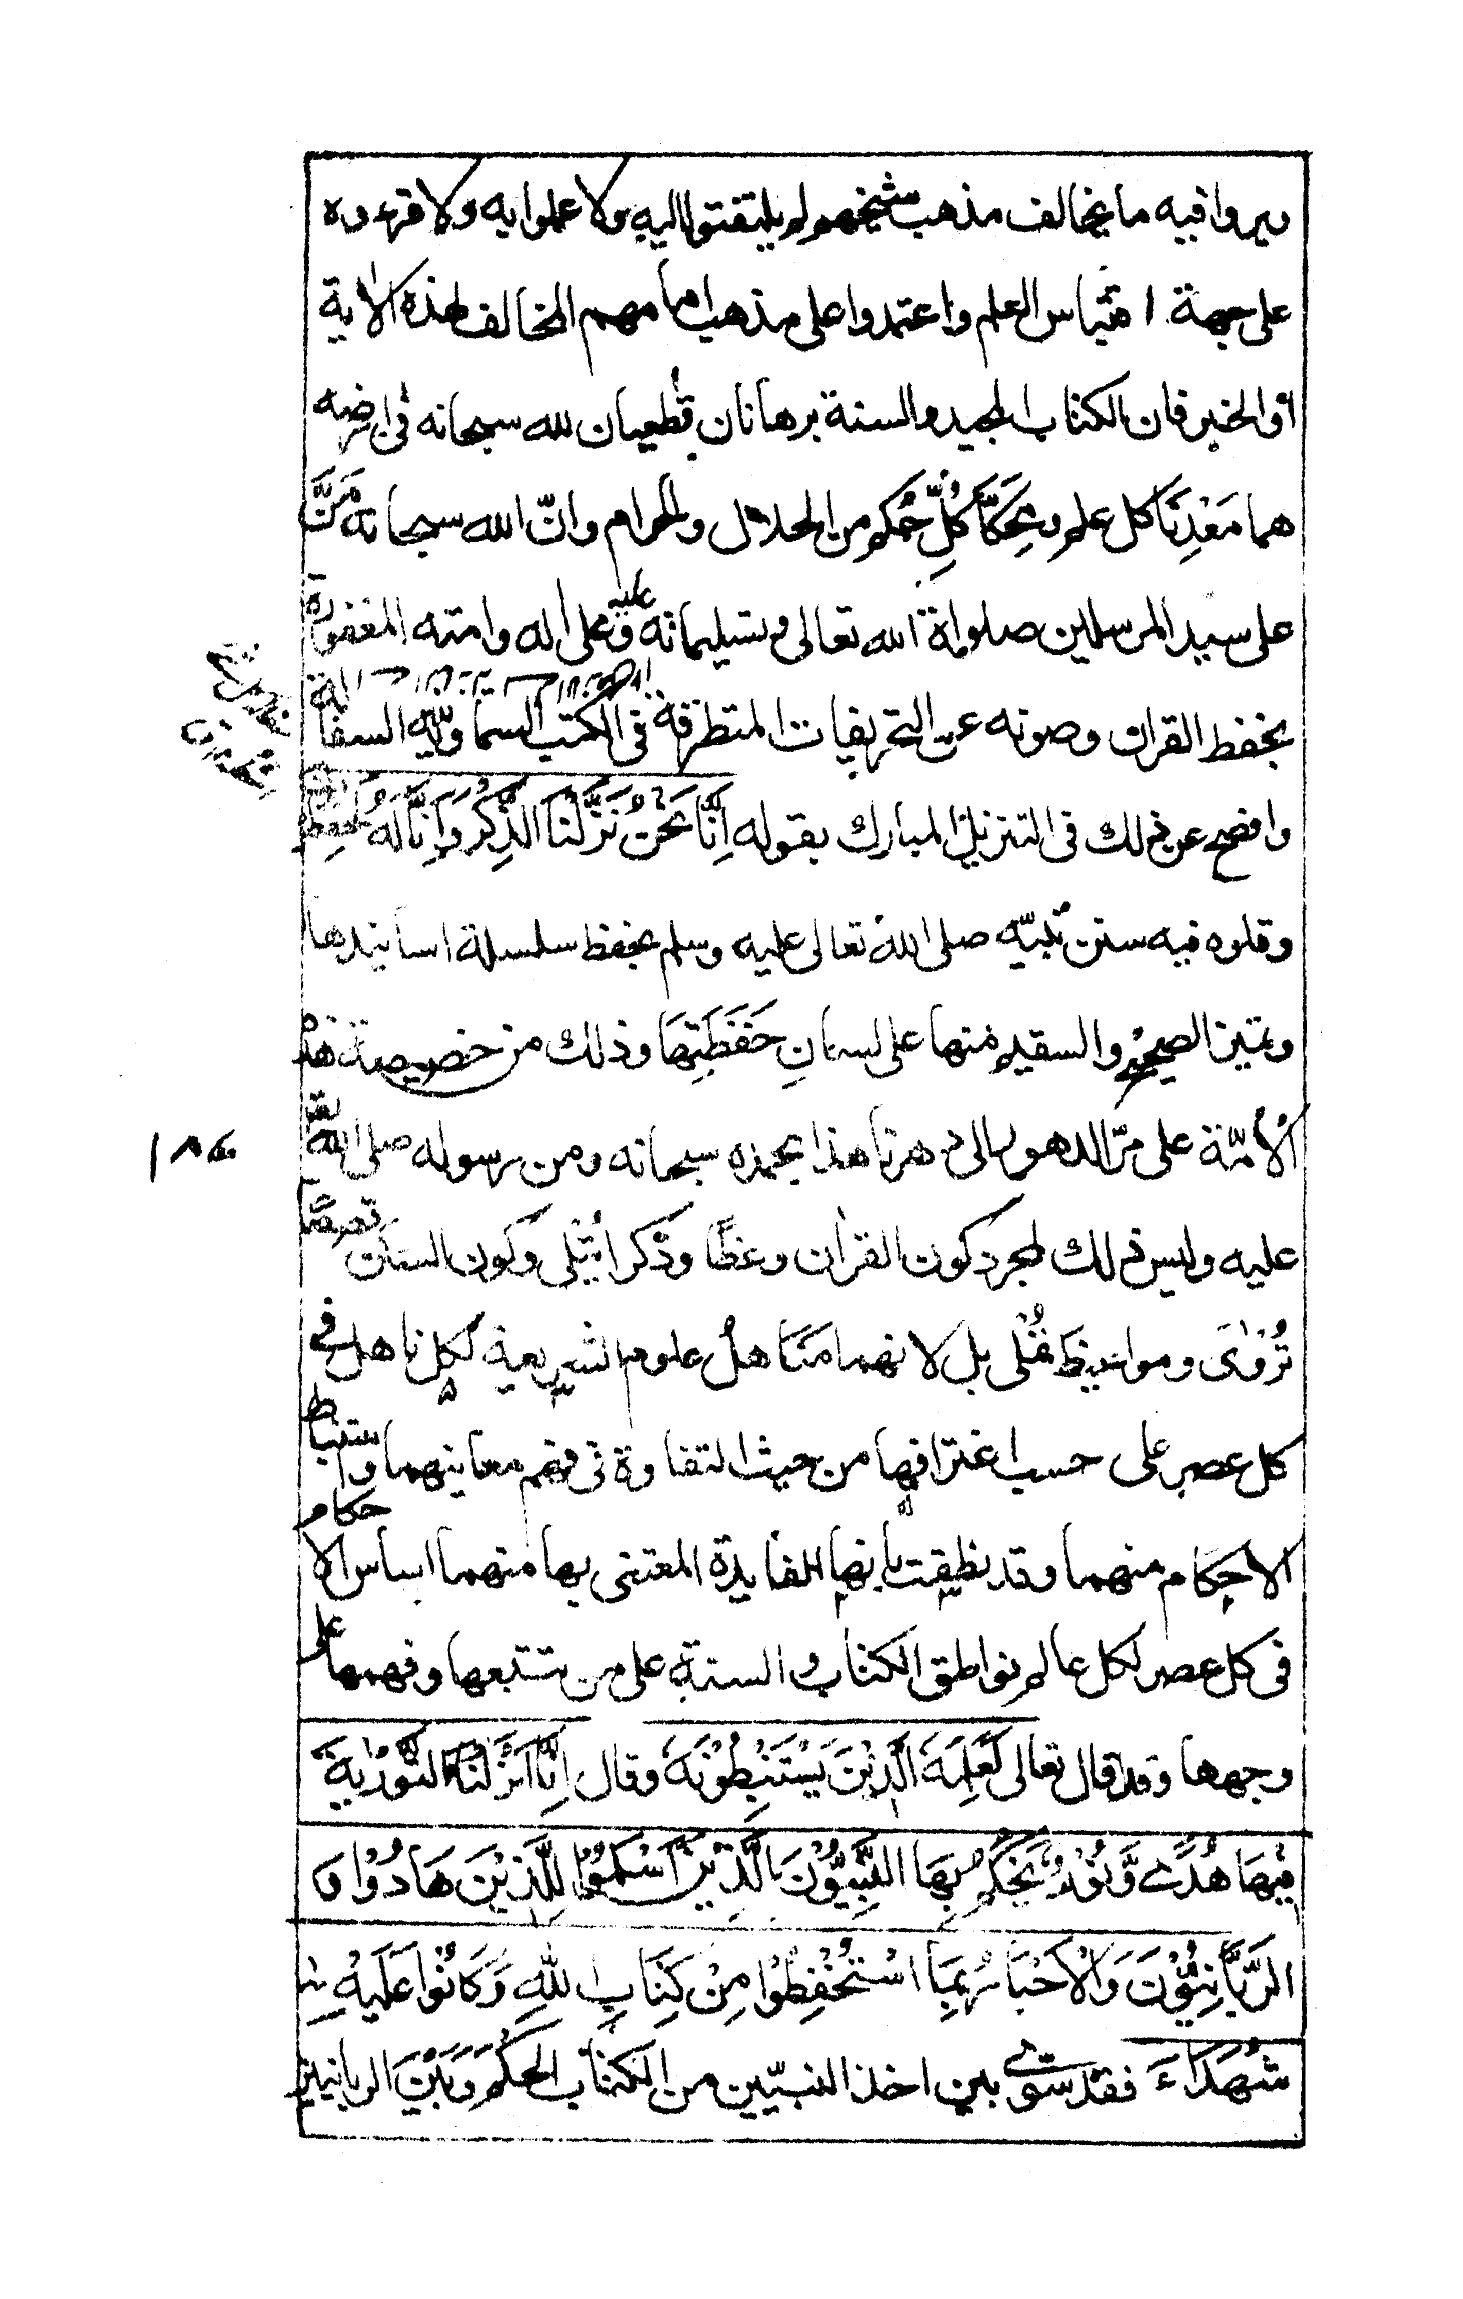 ويروا فيه ما يخالف مذهب شيخهم لم يلتفتوا اليه ولا عملوا به ولا قرءوه
على جهة اقتباس العلم واعتمدوا على مذهب امامهم المخالف لهذه الاٰية
او الخبر فان الكتاب المجيد والسنة برهانان قطعيان لله سبحانه فى ارضه
هما مَعْدِنَا كل علم ومِحَكَّا كُلِّ حُكم من الحلال والحرام وانّ الله سبحانه مَنَّ
على سيد المرسلين صلواة الله تعالى وتسليماته عليه وعلى اٰله وامته المغفورة
بحفظ القران وصونه عن التحريفات المتطرقة فى الكتب السماوية السالفة
وافصح عن ذلك فى التنزيل المبارك بقوله اِنَّا نَحْنُ نَزَّلْنَا الذِّكْرَ وَاِنَّا لَهُ لَحٰفِظُ
وتلوه فيه سنن نبيّه صلى الله تعالى عليه وسلم بحفظ سلسلة اسانيدها
وتمييز الصحيح والسقيم منها على لسان حَفَظَتِهَا وذلك من خصيصة هذه
الاُمّة على مرّ الدهور الى دهرنا هذا بحمده سبحانه ومن رسوله صلى الله
عليه وليس ذلك لمجرد كون القراٰن وعظًا وذكرا يُتْلٰى وكون السنن قصصًا
تُرْوٰى ومواعيظ تُمْلٰى بل لانهما مَنَاهلُ علوم الشريعة لكل ناهل فى
كل عصر على حسب اغترافها من حيث التفاوة فى فهم معانيهما واستنباط
الاحكام منهما وقد نطقت بانها الفايدة المعتنى بها منهما اساس الاحكام
فى كل عصر لكل عالم نواطق الكتاب والسنة على من تتبعها وفهمها على
وجهها وقد قال تعالى لَعَلِمَهُ الَّذِيْنَ يَسْتَنْبِطُوْنَهٗ وقال اِنَّا اَنْزَلْنَا التَّوْرٰىةَ
فِيْهَا هُدًى وَّنُوْرٌ يَحْكُمُ بِهَا النَّبِيُّوْنَ الَّذِيْنَ اَسْلَمُوْا لِلَّذِيْنَ هَادُوْا وَ
الرَّبَّانِيُّوْنَ وَالْاَحْبَارُ بِمَا اسْتُحْفِظُوْا مِنْ كِتَابِ اللهِ وَكَانُوْا عَلَيْهِ
شُهَدَاءَ فقد سوّى بين اخذ النبيّين من الكتاب الحكم وَبَيْنَ الربانيين
١٨٤